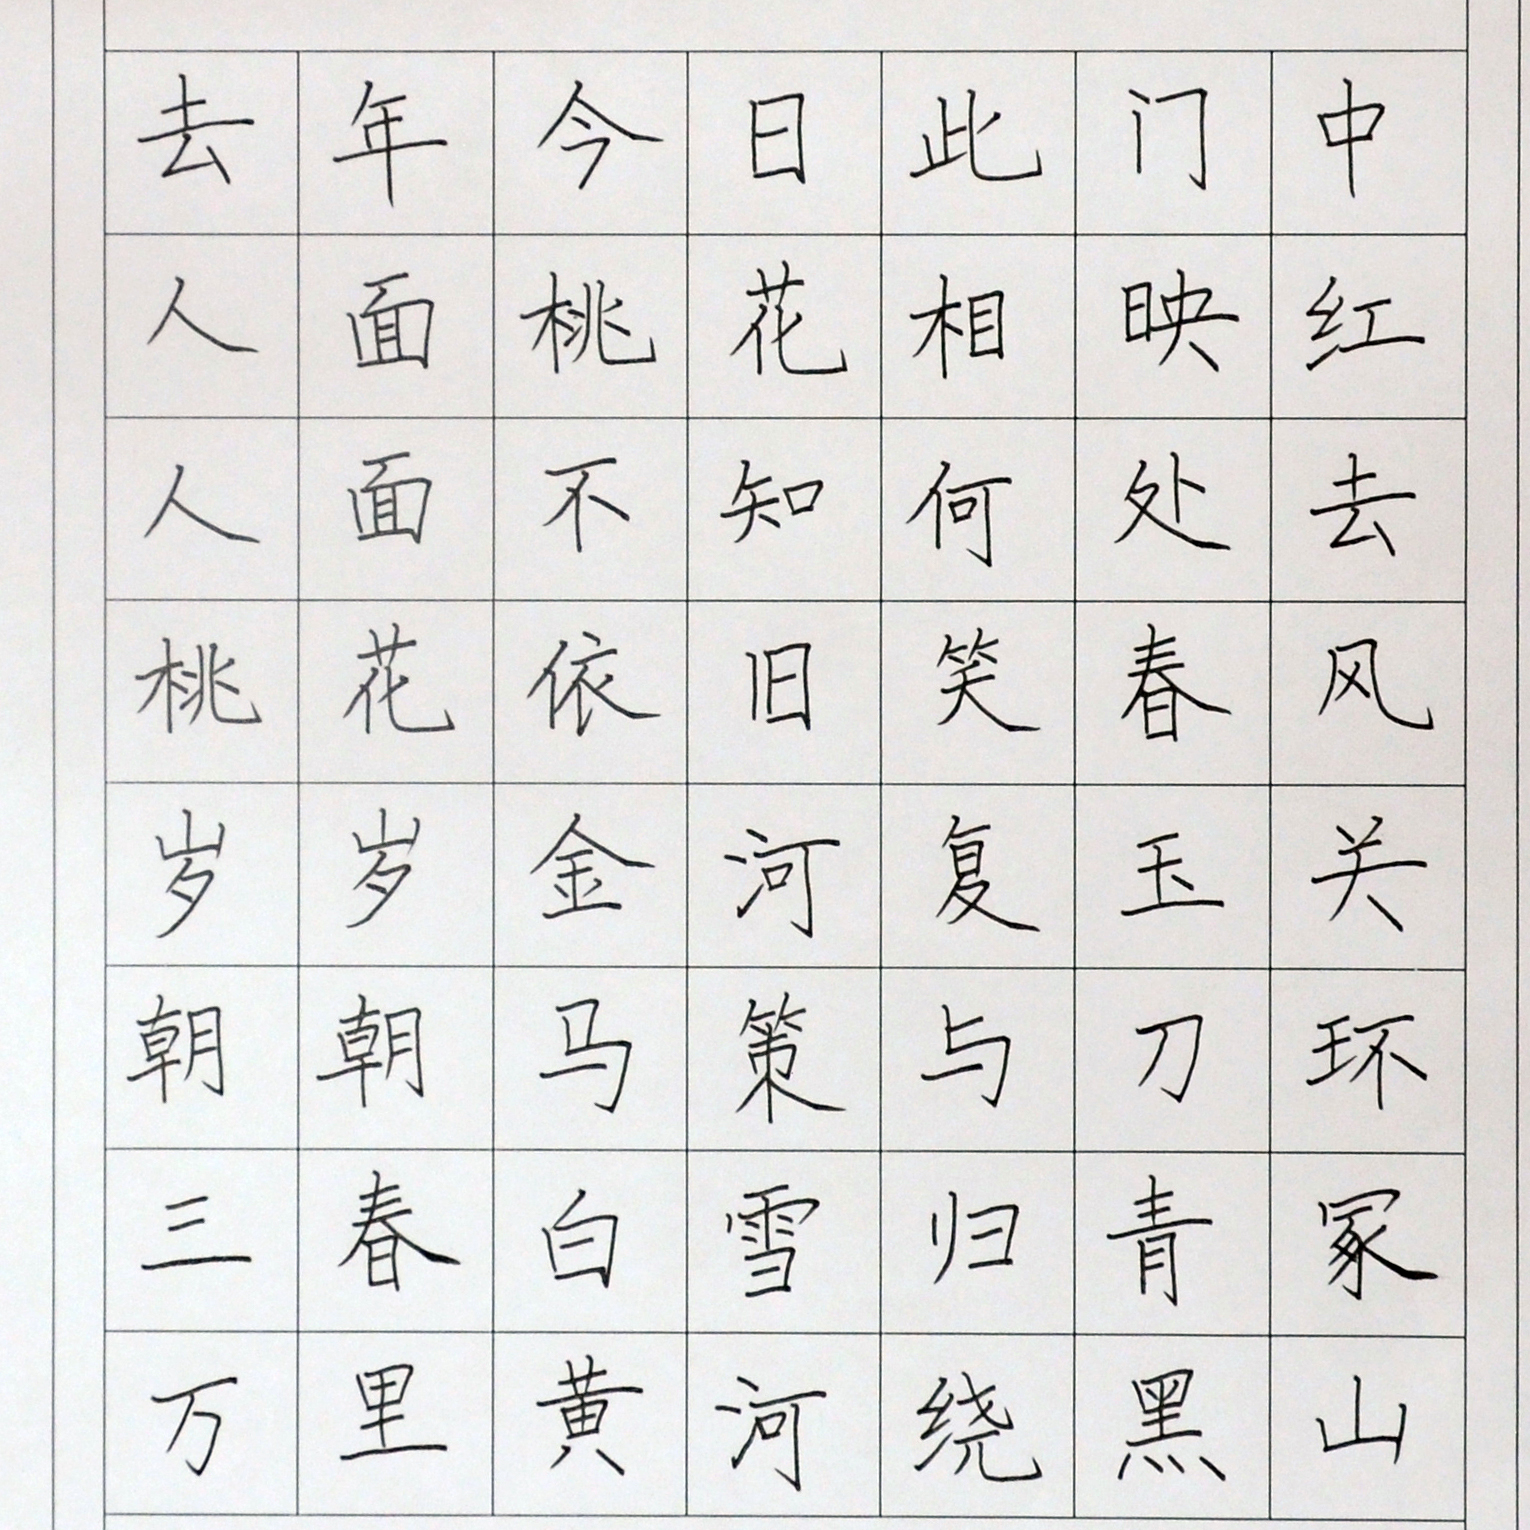 去年今日此门中
人面桃花相映红
人面不知何处去
桃花依旧笑春风
岁岁金河复玉关
朝朝马策与刀环
三春白雪归青冢
万里黄河绕黑山